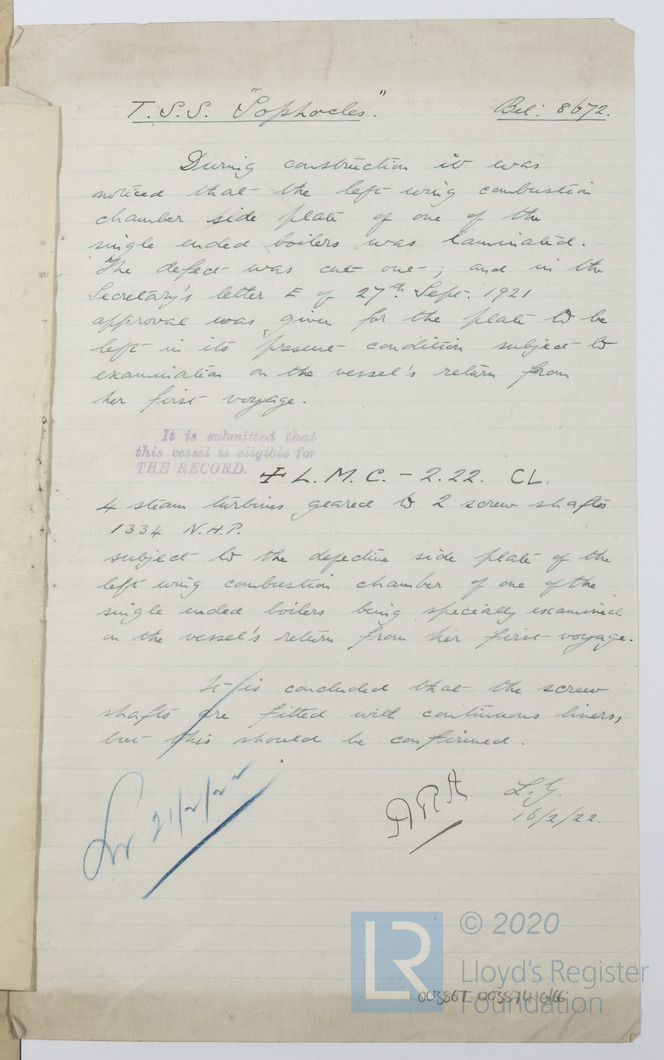 T.S.S. "Sophocles."
Bel: 8672.
During construction it was
noticed that the left wing combustion
chamber side plate of one of the
single ended boilers was laminated.
The defect was cut out; and in the
Secretary's letter E of 27th Sept. 1921
approval was given for the plate to be
left in its present condition subject to
examination on the vessel's return from
her first voyage.
It is submitted that
this vessel is eligible for
THE RECORD.
+ L.M.C. - 2.22. CL.
4 steam turbines geared to 2 screw shafts
1334 N.H.P.
subject to the defective side plate of the
left wing combustion chamber of one of the
single ended boilers being specially examined
on the vessel's return from her first voyage.
It is concluded that the screw
shafts are fitted with continuous liners,
but this should be confirmed.
21/2/22
L.Y.
16/2/22.
LR
© 2020
Lloyd's Register
Foundation
003867-003874-0166